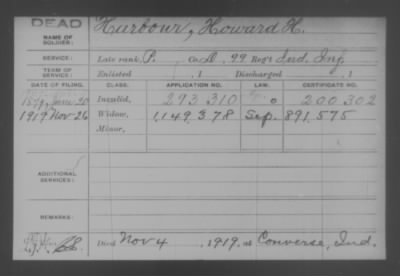 DEAD
NAME OF SOLDIER:
Harbour, Howard H.
SERVICE:
Late rank, P. Co. D, 99 Reg't Ind. Inf
TERM OF SERVICE:
Enlisted , 1 Discharged , 1
DATE OF FILING. CLASS. APPLICATION NO. LAW. CERTIFICATE NO.
June 20 Invalid, 293 310 200 302
1919 Nov 26 Widow, 1,149 378 Sep. 891,575
Minor,
ADDITIONAL SERVICES:
REMARKS:
Died Nov 4, 1919, at Converse, Ind.